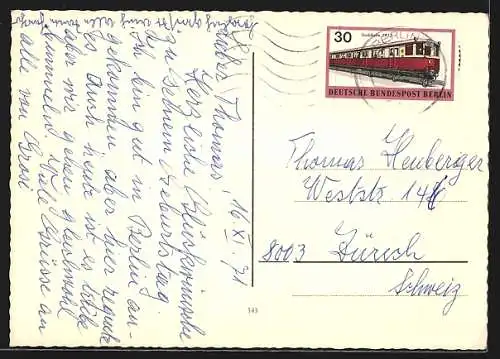 16. XI. 71
Lieber Thomas!
Herzliche Glückwünsche
zu Deinem Geburtstag.
Ich bin gut in Berlin an-
gekommen aber hier regnete
es. Auch heute ist es
aber wir gehen gleichwohl
bummeln. Viele Grüsse an
alle von
30
Stadtbahn 1932
DEUTSCHE BUNDESPOST BERLIN
BERLIN
Thomas Heuberger
Weststr. 146
8003 Zürich
Schweiz
143